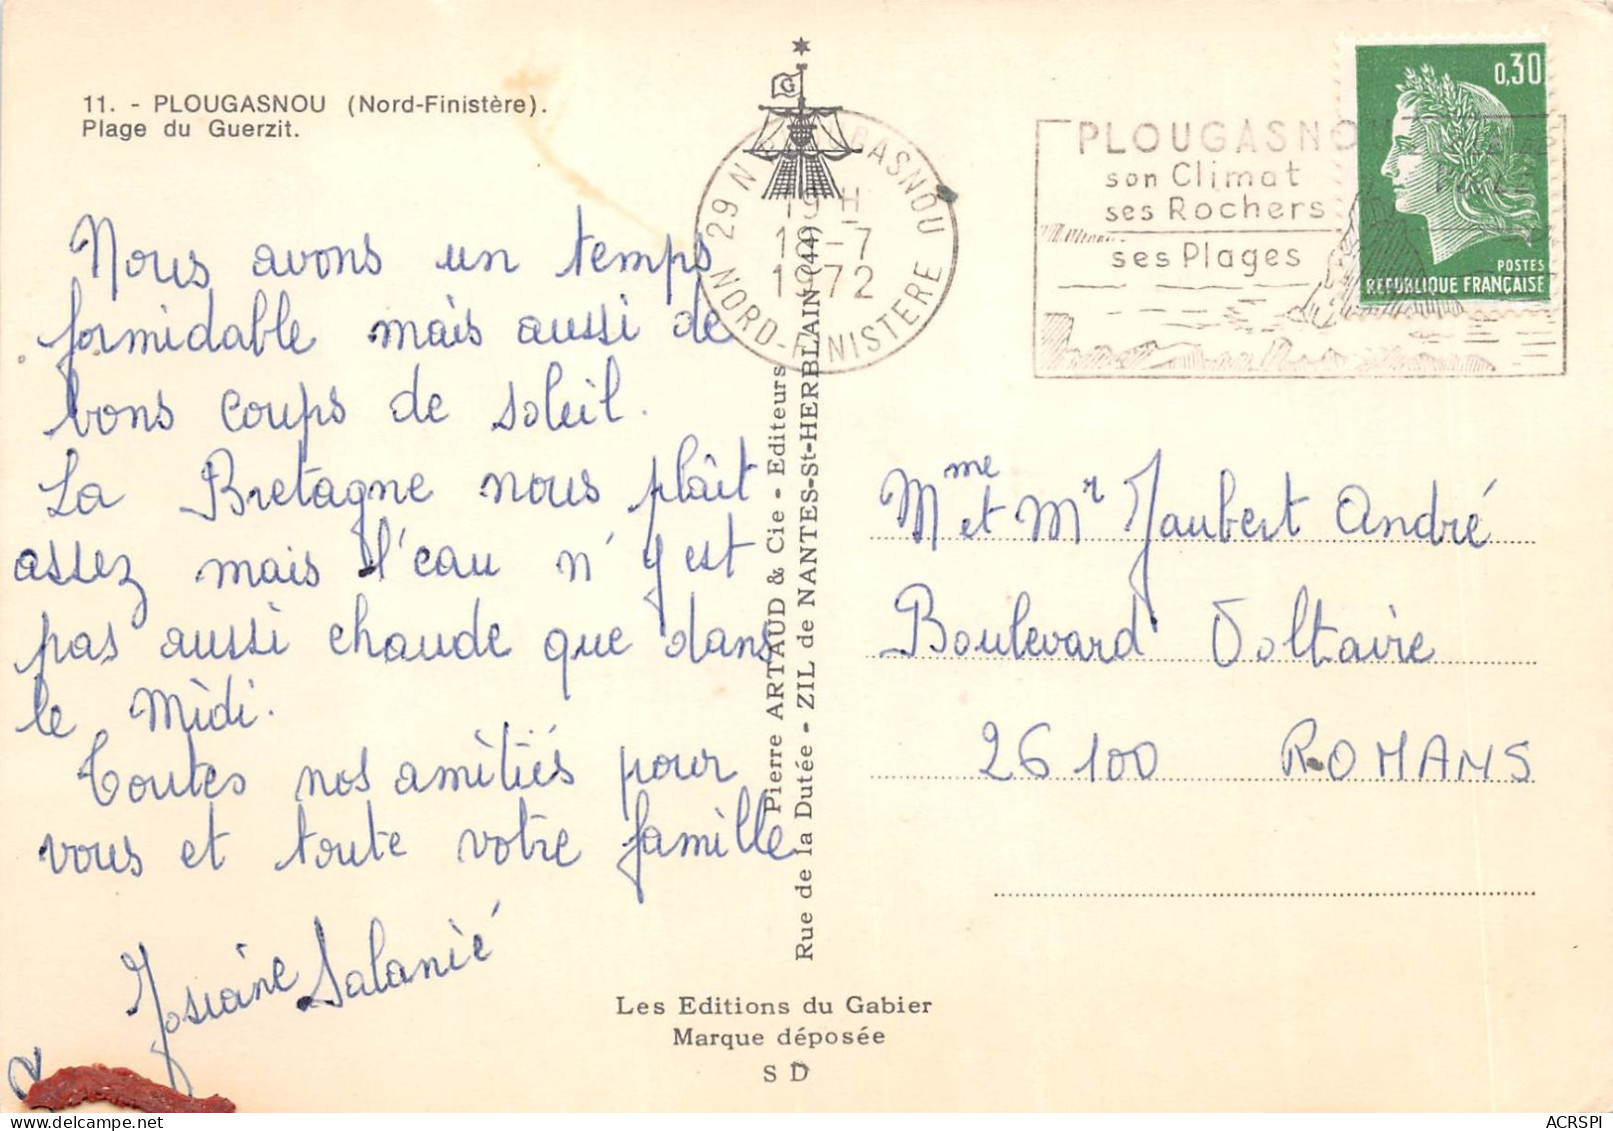 11. - PLOUGASNOU (Nord-Finistère).
Plage du Guerzit.
Nous avons un temps
formidable mais aussi de
bons coups de soleil.
La Bretagne nous plaît
assez mais l'eau n'y est
pas aussi chaude que dans
le Midi.
Toutes nos amitiés pour
vous et toute votre famille
Josiane Salanié
G
29 N PLOUGASNOU
19 H
18-7
1972
NORD-FINISTERE
Pierre ARTAUD & Cie - Editeurs
Rue de la Dutée - ZIL de NANTES-St-HERBLAIN (44)
Les Editions du Gabier
Marque déposée
S D
PLOUGASNOU
son Climat
ses Rochers
ses Plages
0,30
POSTES
REPUBLIQUE FRANÇAISE
Mme et Mr Jaubert André
Boulevard Voltaire
26100 ROMANS
ACRSPI